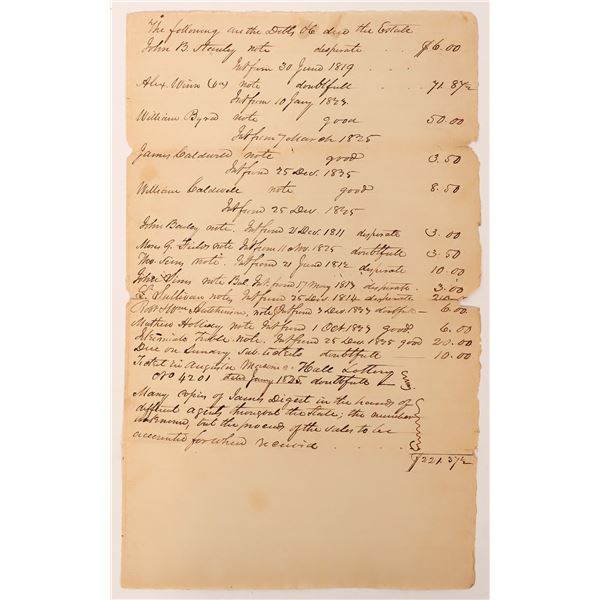 The following are the Debts &c due the Estate
John B. Stanly note desperate $6.00
Int from 30 June 1819
Alex. Winn note doubtfull 71.87½
Int from 10 Jany 1824
William Byrd note good 50.00
Int from 7 March 1825
James Caldwell note good 3.50
Int from 25 Dec. 1825
William Caldwell note good 8.50
Int from 25 Dec. 1825
John Bailey note. Int from 21 Dec. 1811 desperate 3.00
Mons G. Fields note Int from 11 Nov. 1825 doubtfull 3.50
Tho. Sims note. Int from 21 June 1812 desperate 10.00
John Sims note Bal Int from 17 May 1817 desperate 3.00
Sullivan notes Int from 25 Dec. 1814 desperate
Robt & Wm Hutchinson, note Int from 3 Dec. 1823 doubtf- 6.00
Mathew Holliday note Int from 1 Oct 1823 good 6.00
Note. Int from 25 Dec 1825 good 20.00
Due on Sundry Sub. tickets doubtfull 10.00
Ticket in Augusta Masonic Hall Lottery
No 4201 dated Jany 1825. doubtfull
Many copies of Laws Digest in the hands of
different agents throughout the State; the number
unknown, but the proceeds of the sales to be
accounted for when received
$221.37½